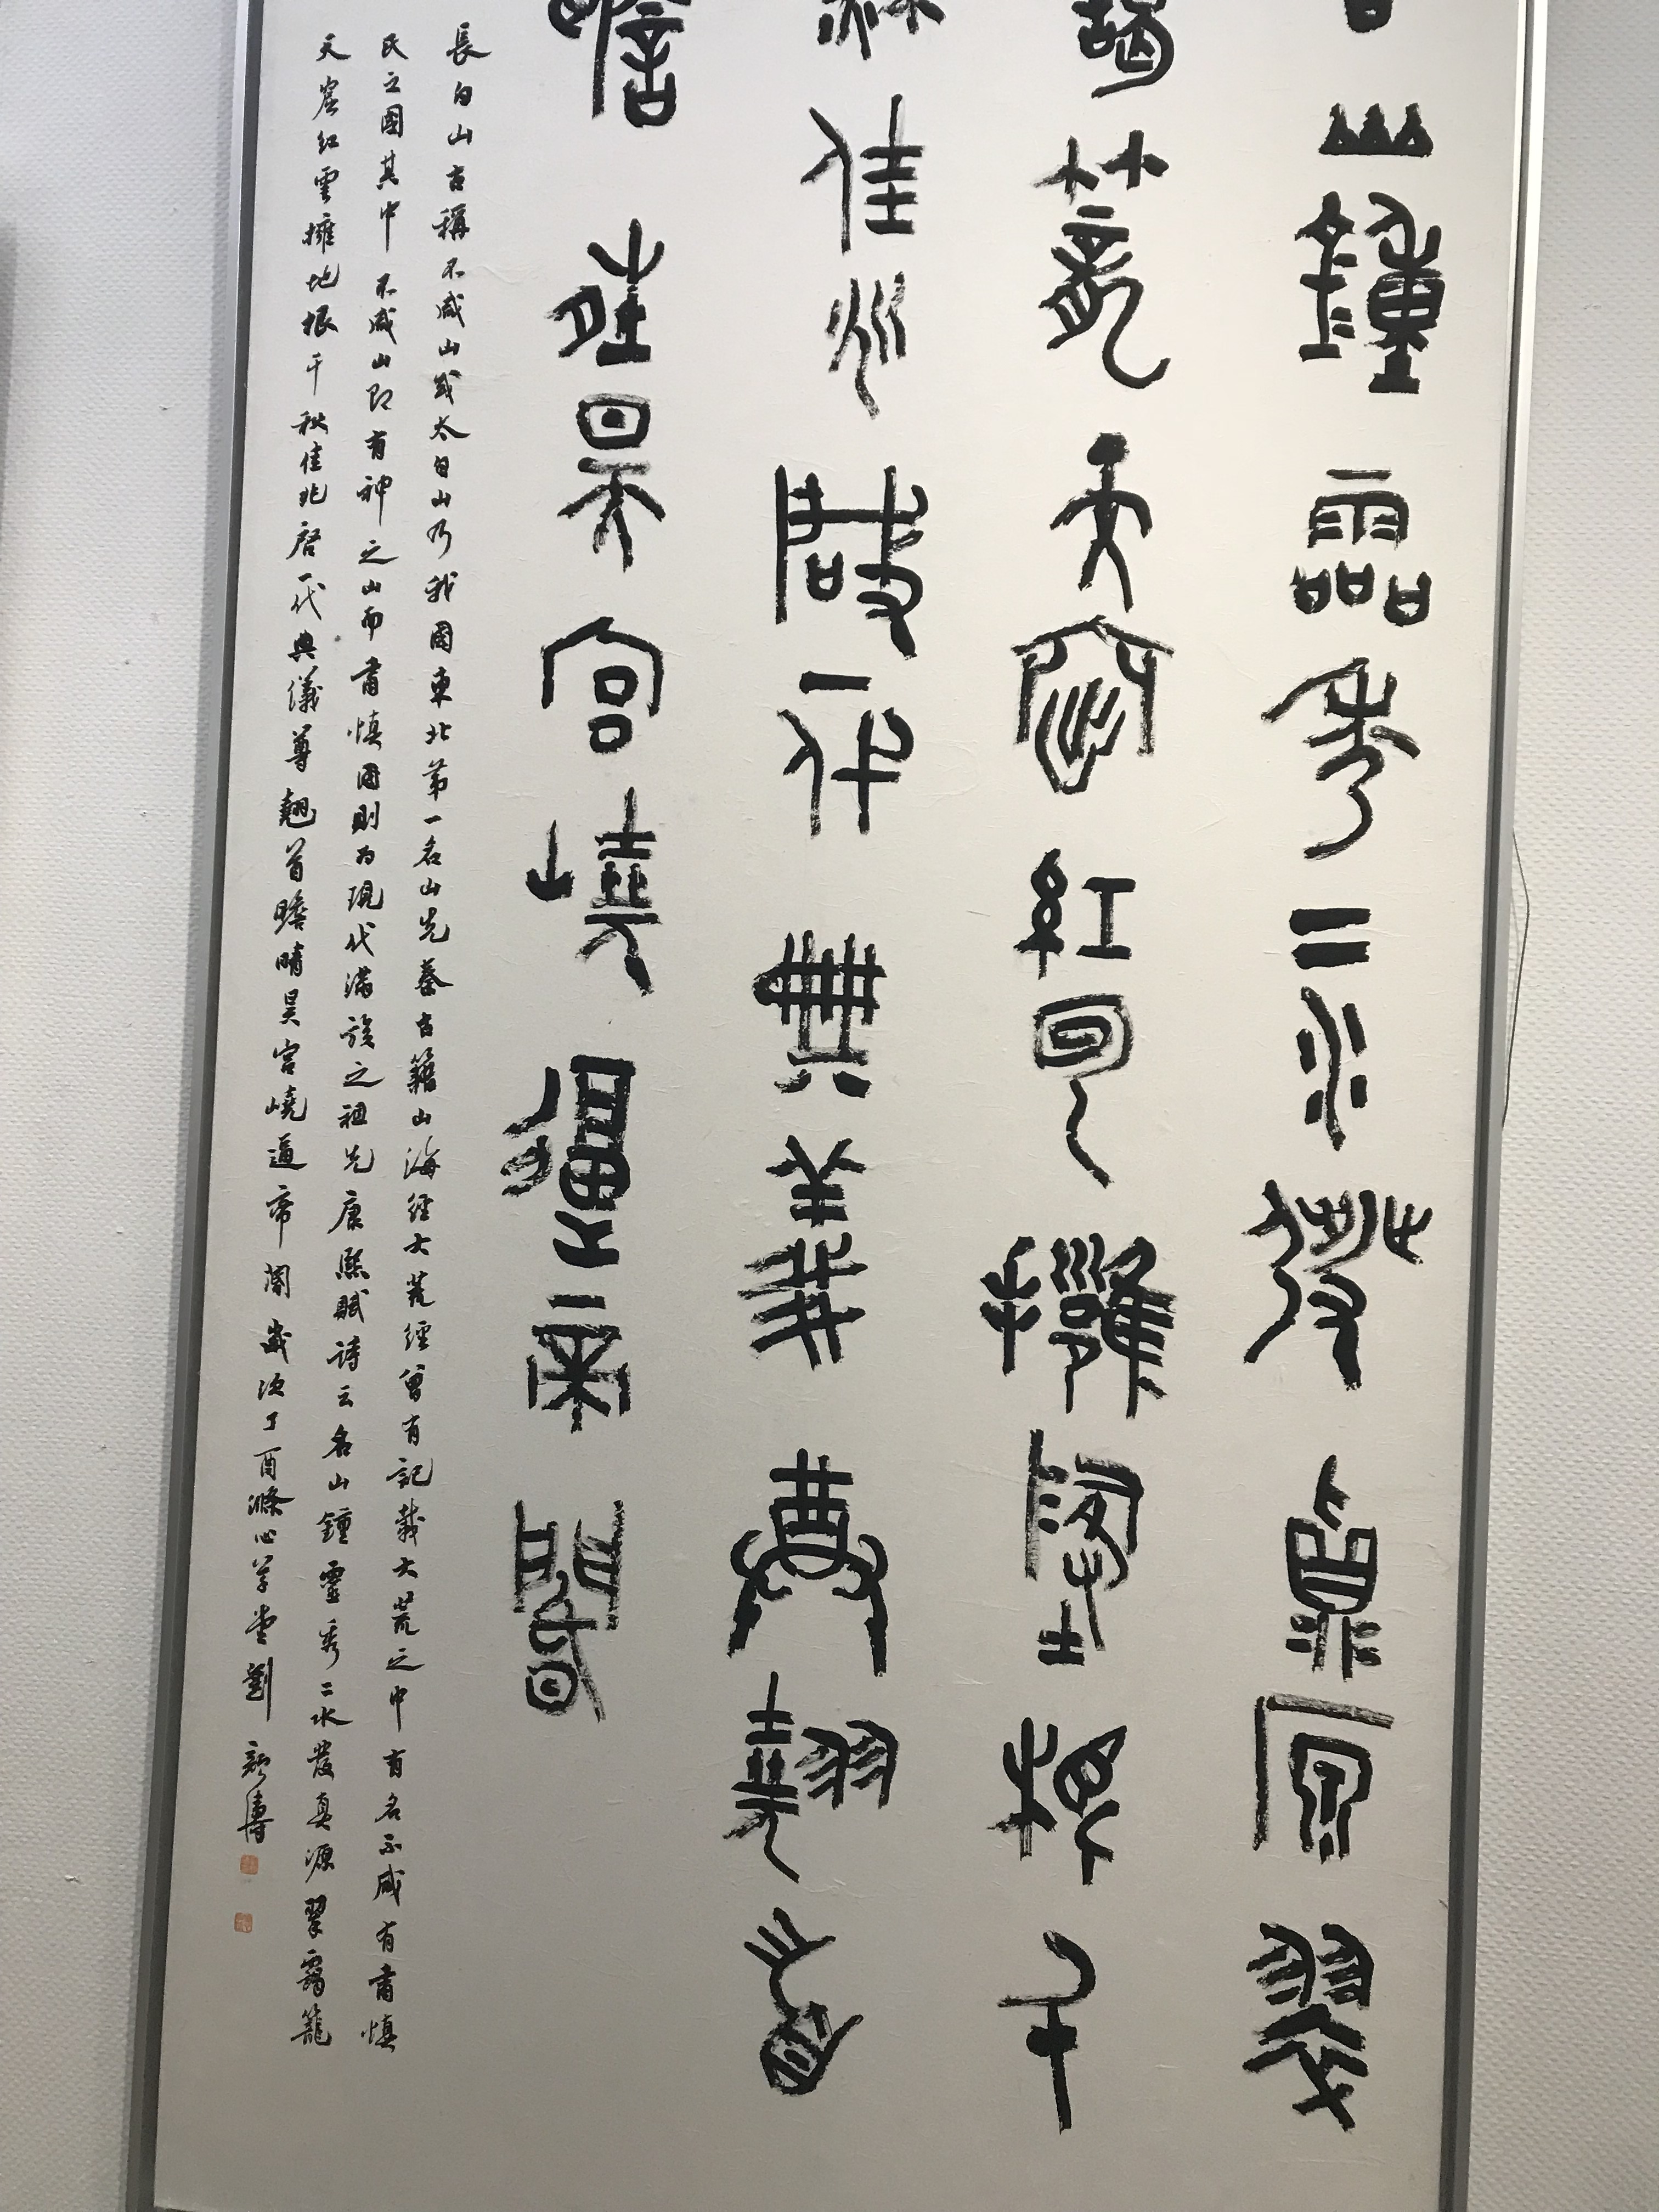 名山鍾靈秀二水發真源翠
靄籠天窟紅雲擁地根千
秋佳兆啟一代典儀尊翹首
瞻晴昊宮嶢逼帝閽
長白山古稱不咸山或太白山乃我國東北第一名山先秦古籍山海經大荒經曾有記載大荒之中有名不咸有肅慎
氏之國其中不咸山即有神之山而肅慎國則為現代滿族之祖先康熙賦詩云名山鍾靈秀二水發真源翠靄籠
天窟紅雲擁地根千秋佳兆啓一代典儀尊翹首瞻晴昊宮嶢逼帝閽歲次丁酉滌心草堂劉新濤